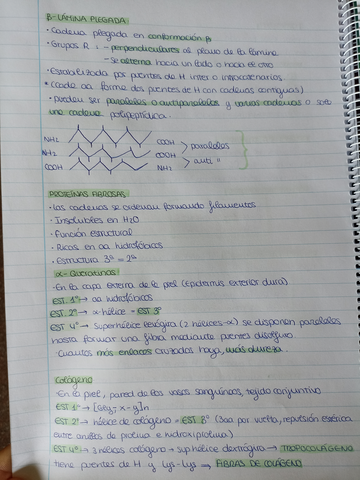 β-LÁMINA PLEGADA
· Cadena plegada en conformación β
· Grupos R = - perpendiculares al plano de la lámina
- se alterna hacia un lado o hacia el otro
· Estabilizada por puentes de H inter o intracatenarios
* (Cada aa forma dos puentes de H con cadenas contiguas)
· Pueden ser paralelas o antiparalelas y varias cadenas o solo
una cadena polipeptídica.
NH2 COOH > paralelas
NH2 COOH
COOH NH2 > anti "
PROTEÍNAS FIBROSAS
· Las cadenas se ordenan formando filamentos
· Insolubles en H2O
· Función estructural
· Ricas en aa hidrofóbicos
· Estructura 3ª = 2ª
α-Queratinas
· En la capa externa de la piel (Epidermis exterior dura)
EST. 1ª → aa hidrofóbicos
EST. 2ª → α hélice = EST 3ª
EST 4ª → superhélice levógira (2 hélices-α) se disponen paralelas
hasta formar una fibra mediante puentes disulfuro
· Cuantos más enlaces cruzados haya, más dureza.
Colágeno
· En la piel, pared de los vasos sanguíneos, tejido conjuntivo
EST 1ª → [Gly-x-y]n
EST 2ª → hélice de colágeno = EST 3ª (3aa por vuelta, repulsión estérica
entre anillos de prolina e hidroxiprolina)
EST 4ª → 3 hélices colágeno → sup hélice dextrógira → TROPOCOLÁGENO
tiene puentes de H y Lys-Lys → FIBRAS DE COLÁGENO